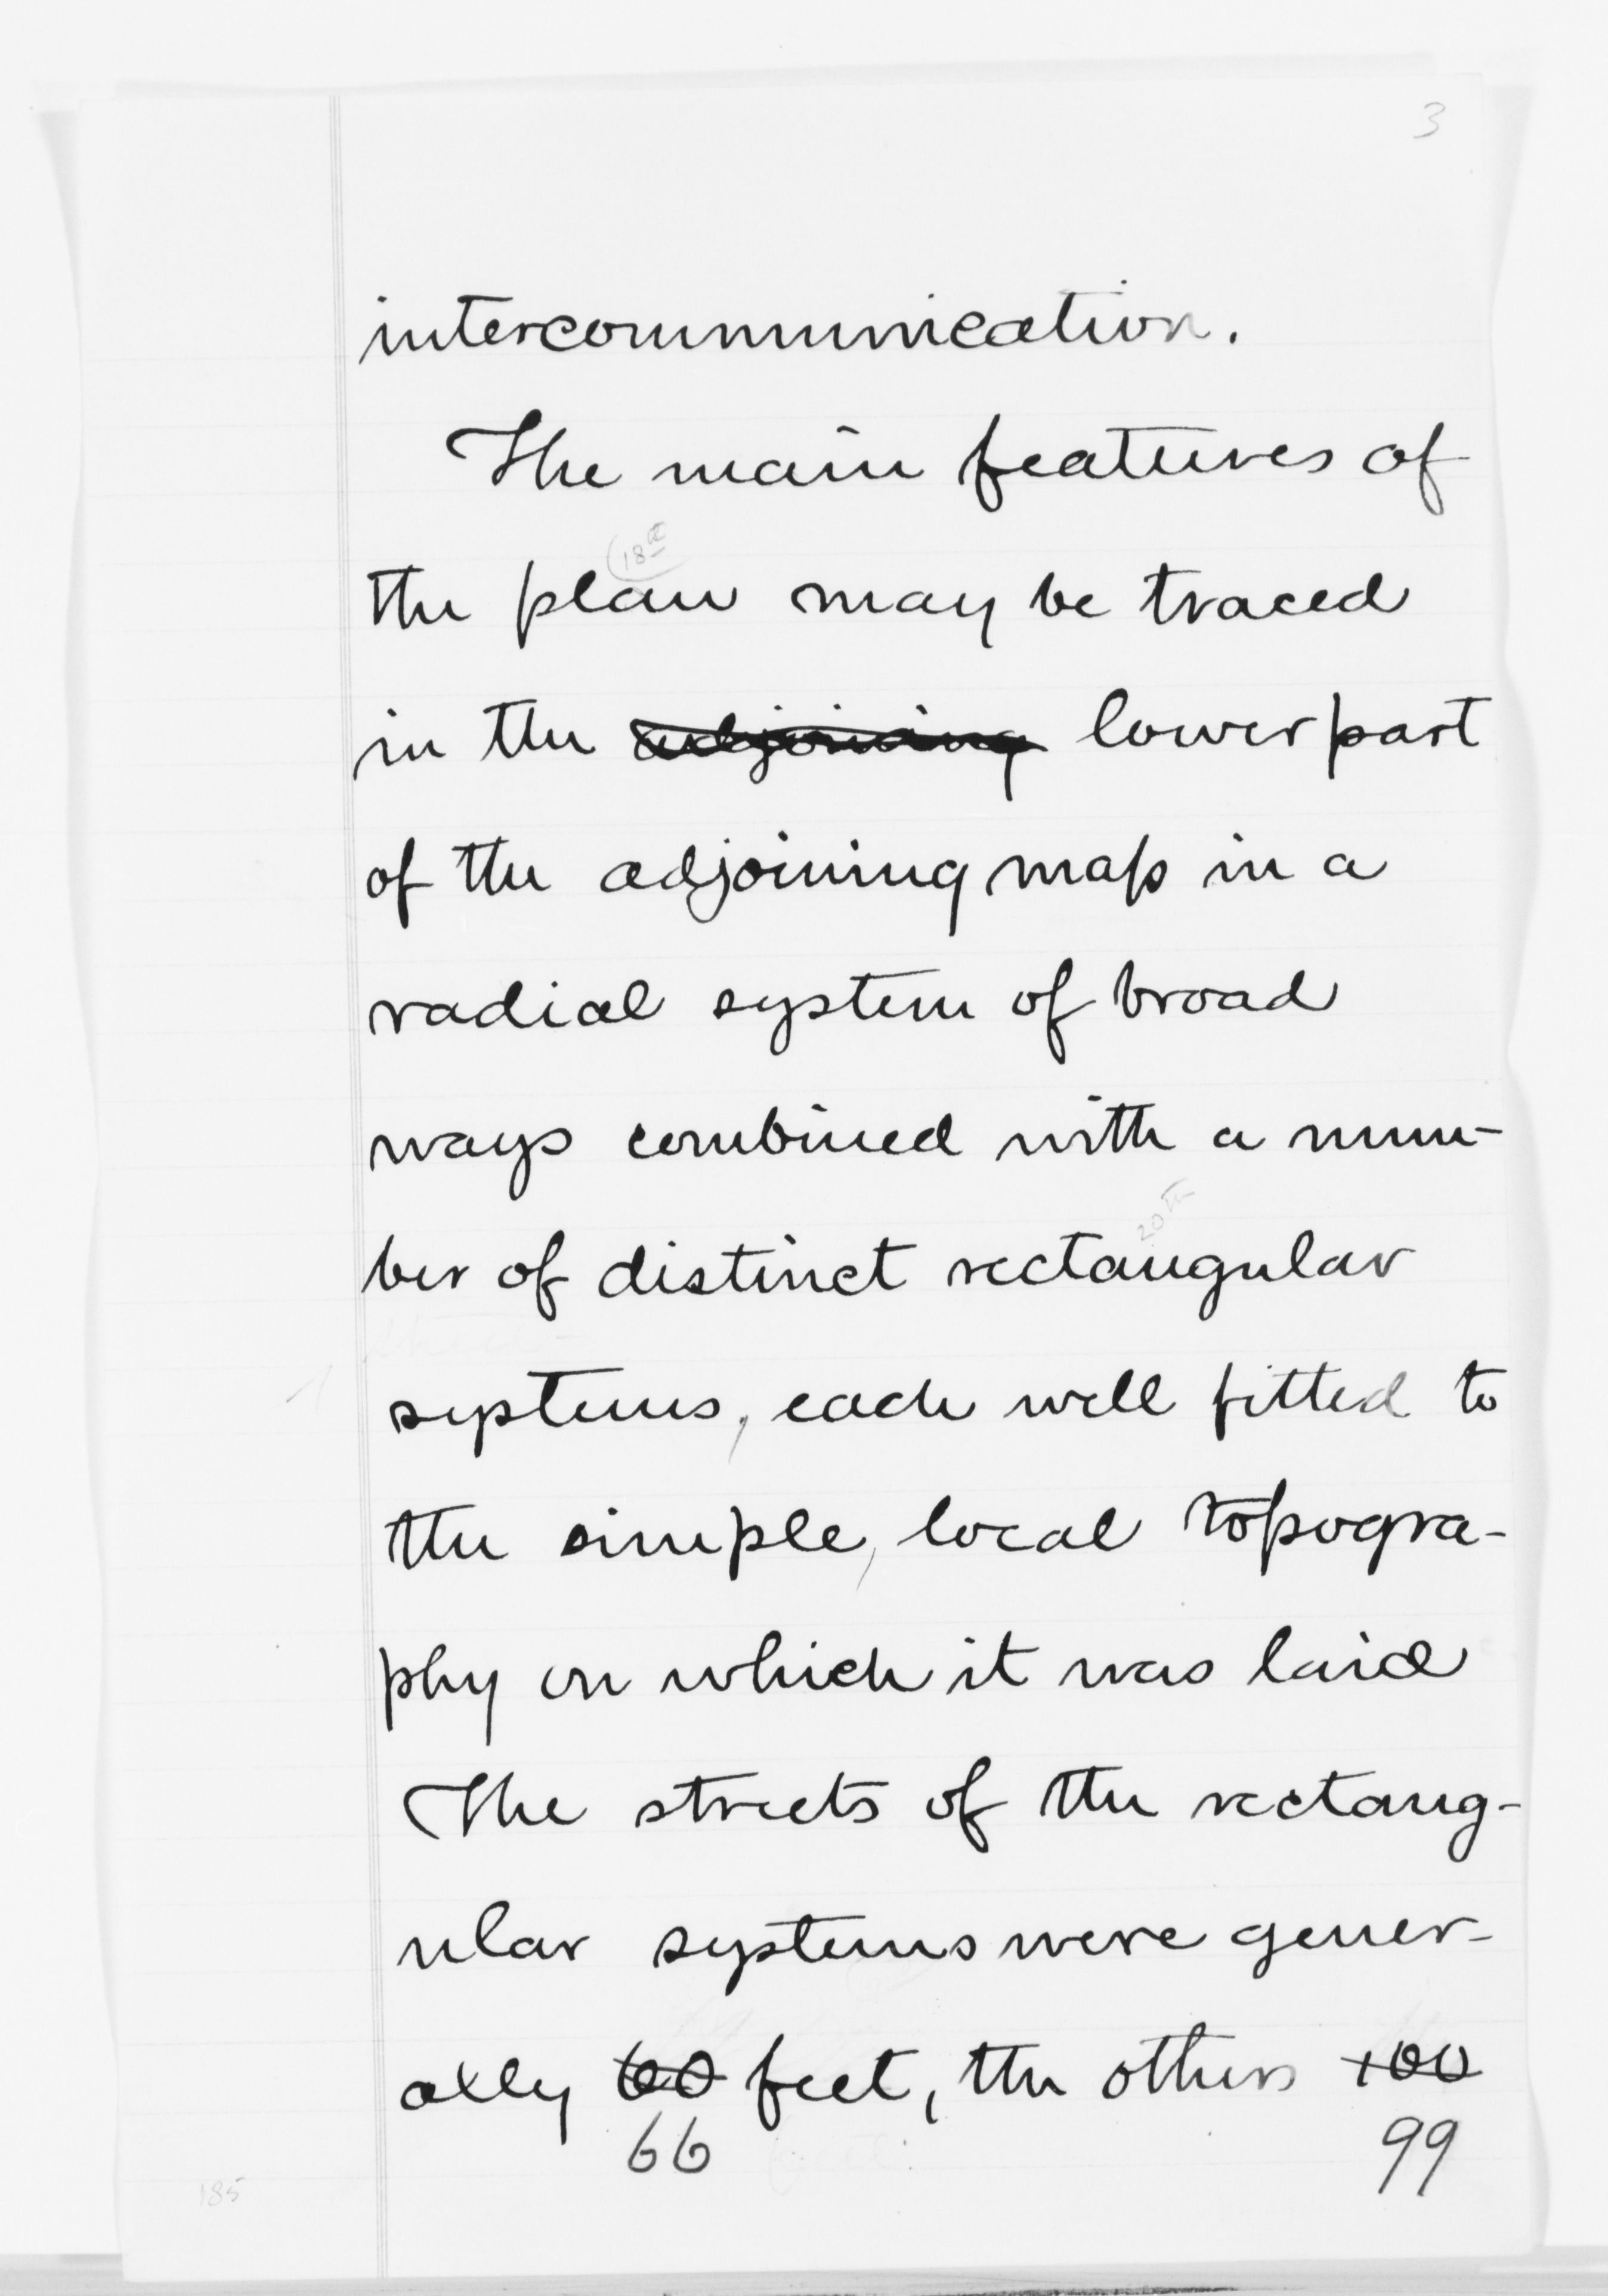 3
intercommunication.
The main features of
18th
the plan may be traced
in the adjoining lower part
of the adjoining map in a
radial system of broad
ways combined with a num-
20th
ber of distinct rectangular
systems, each well fitted to
the simple, local topogra-
phy on which it was laid
The streets of the rectang-
ular systems were gener-
ally 60 feet, the others 100
66 99
185